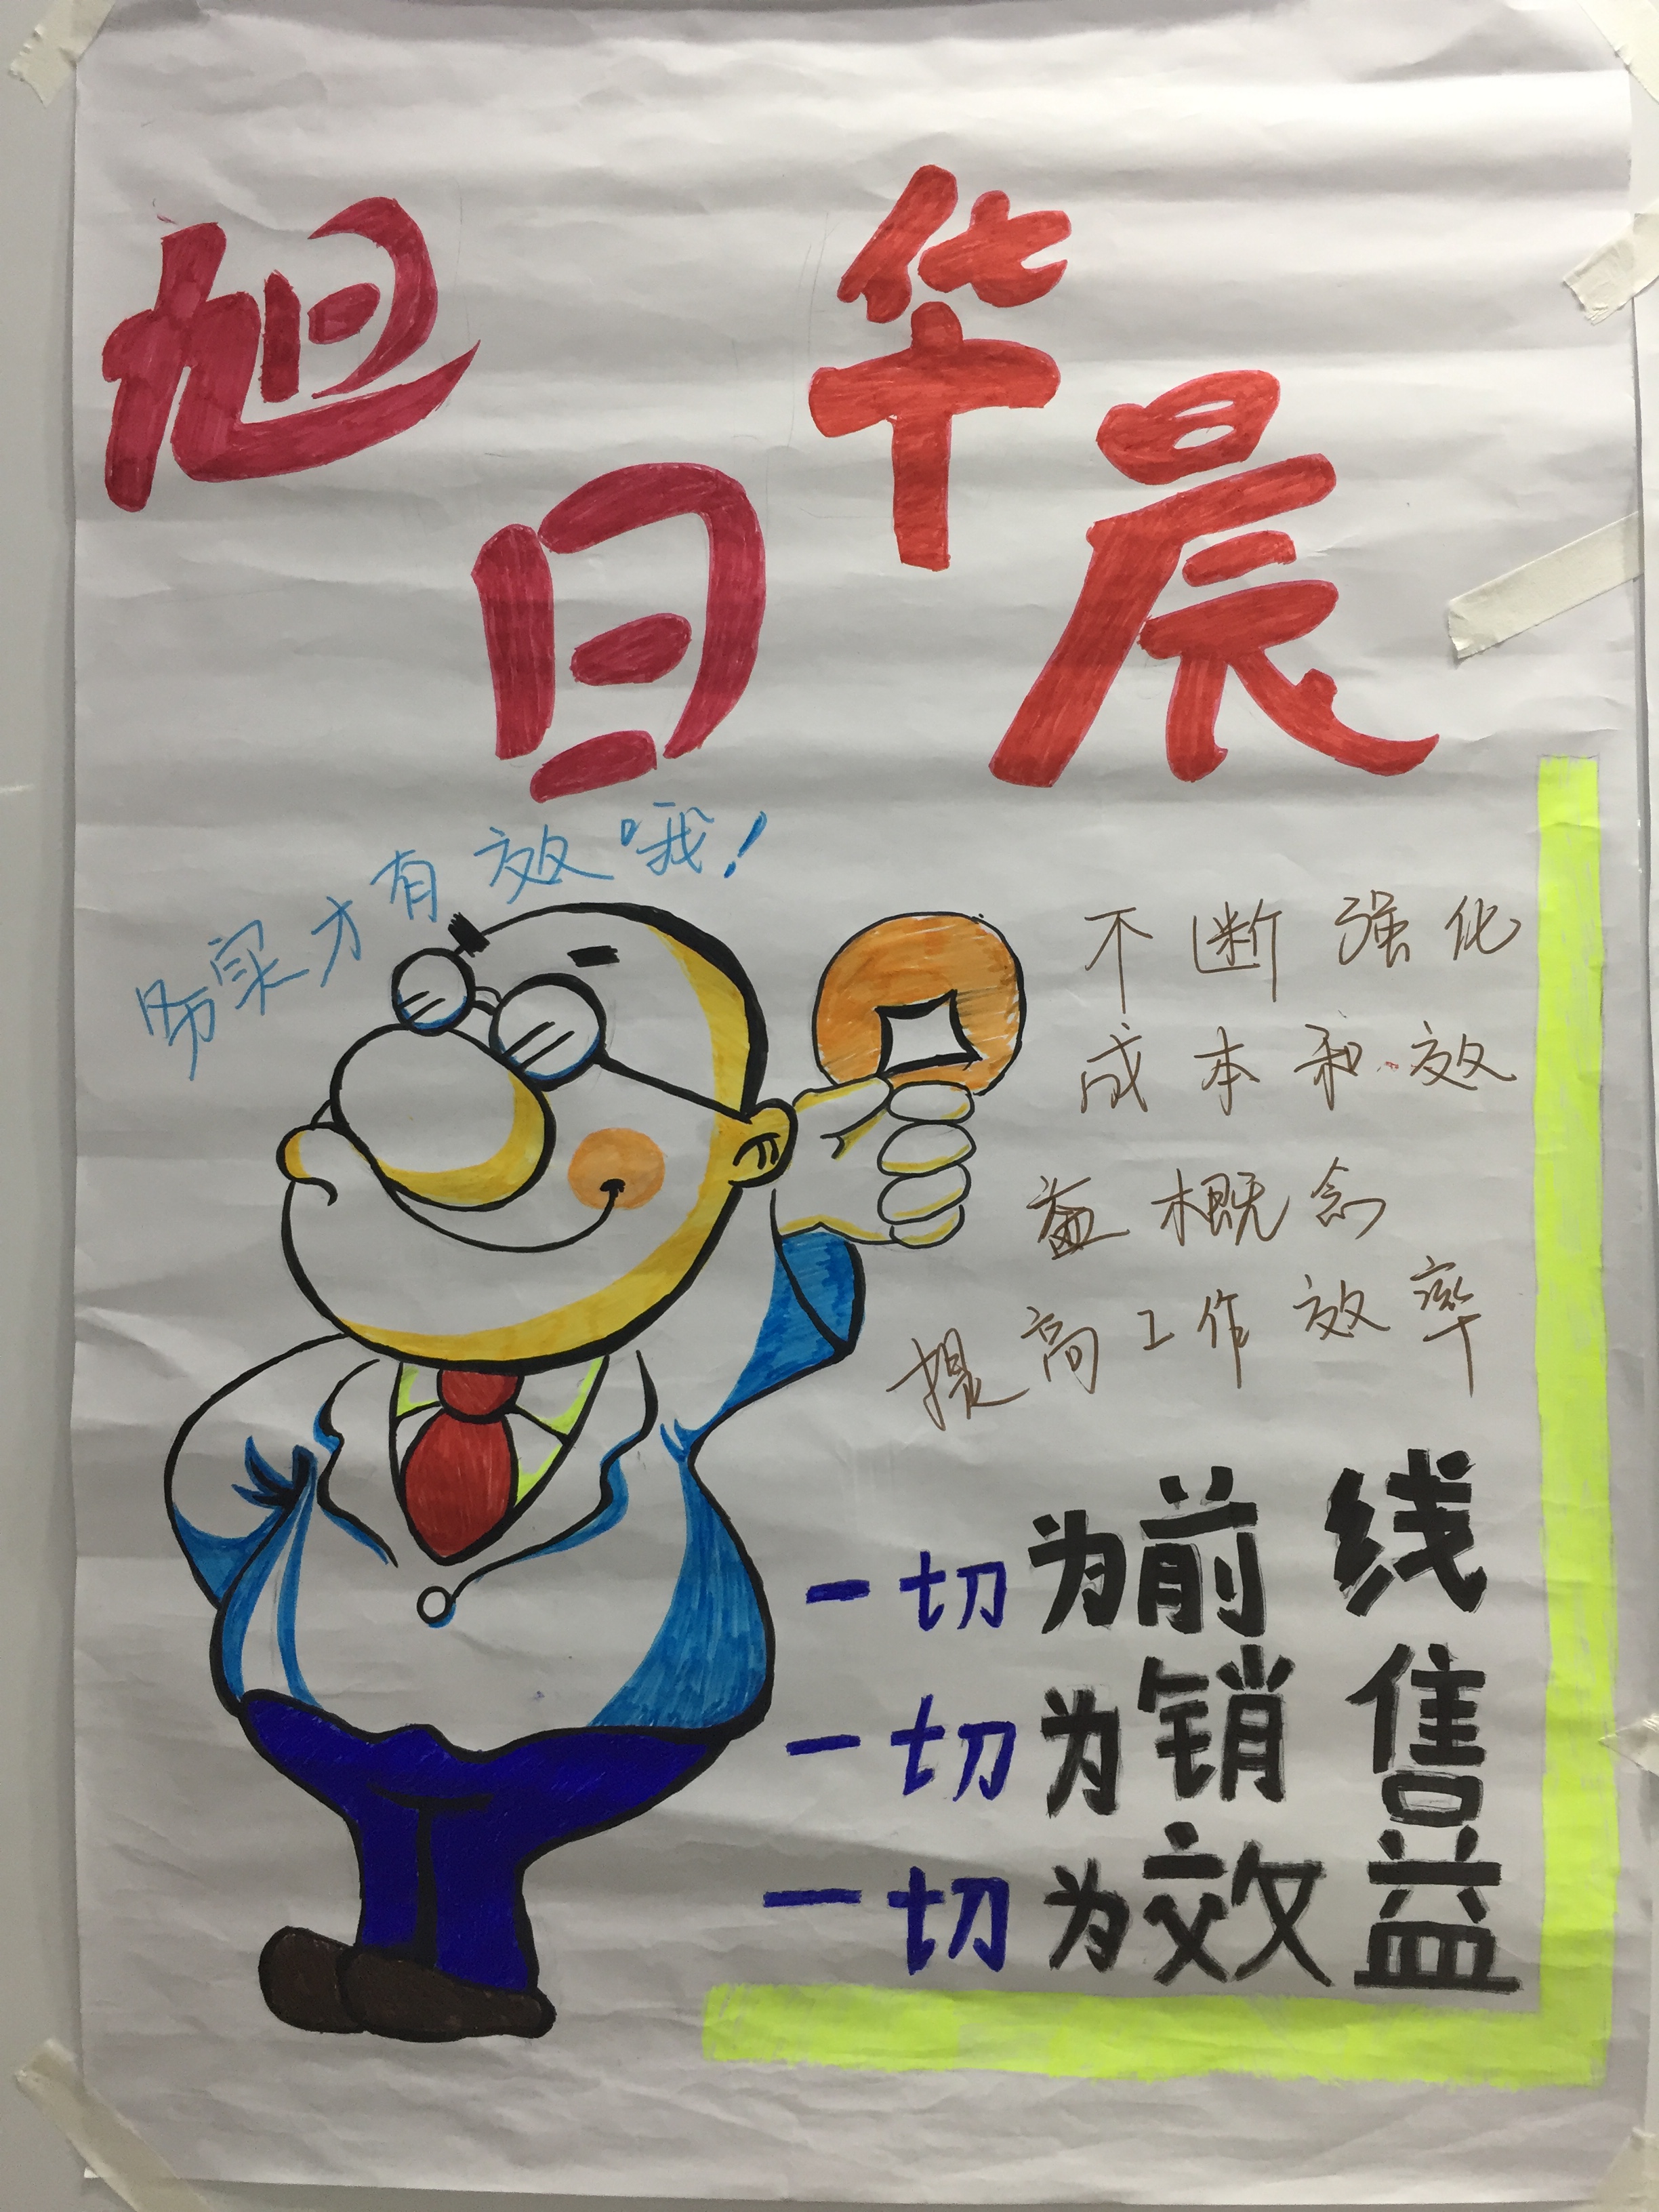 旭日 华晨
实才有效哦！
不断强化
成本和效
益概念
提高工作效率
一切为前线
一切为销售
一切为效益